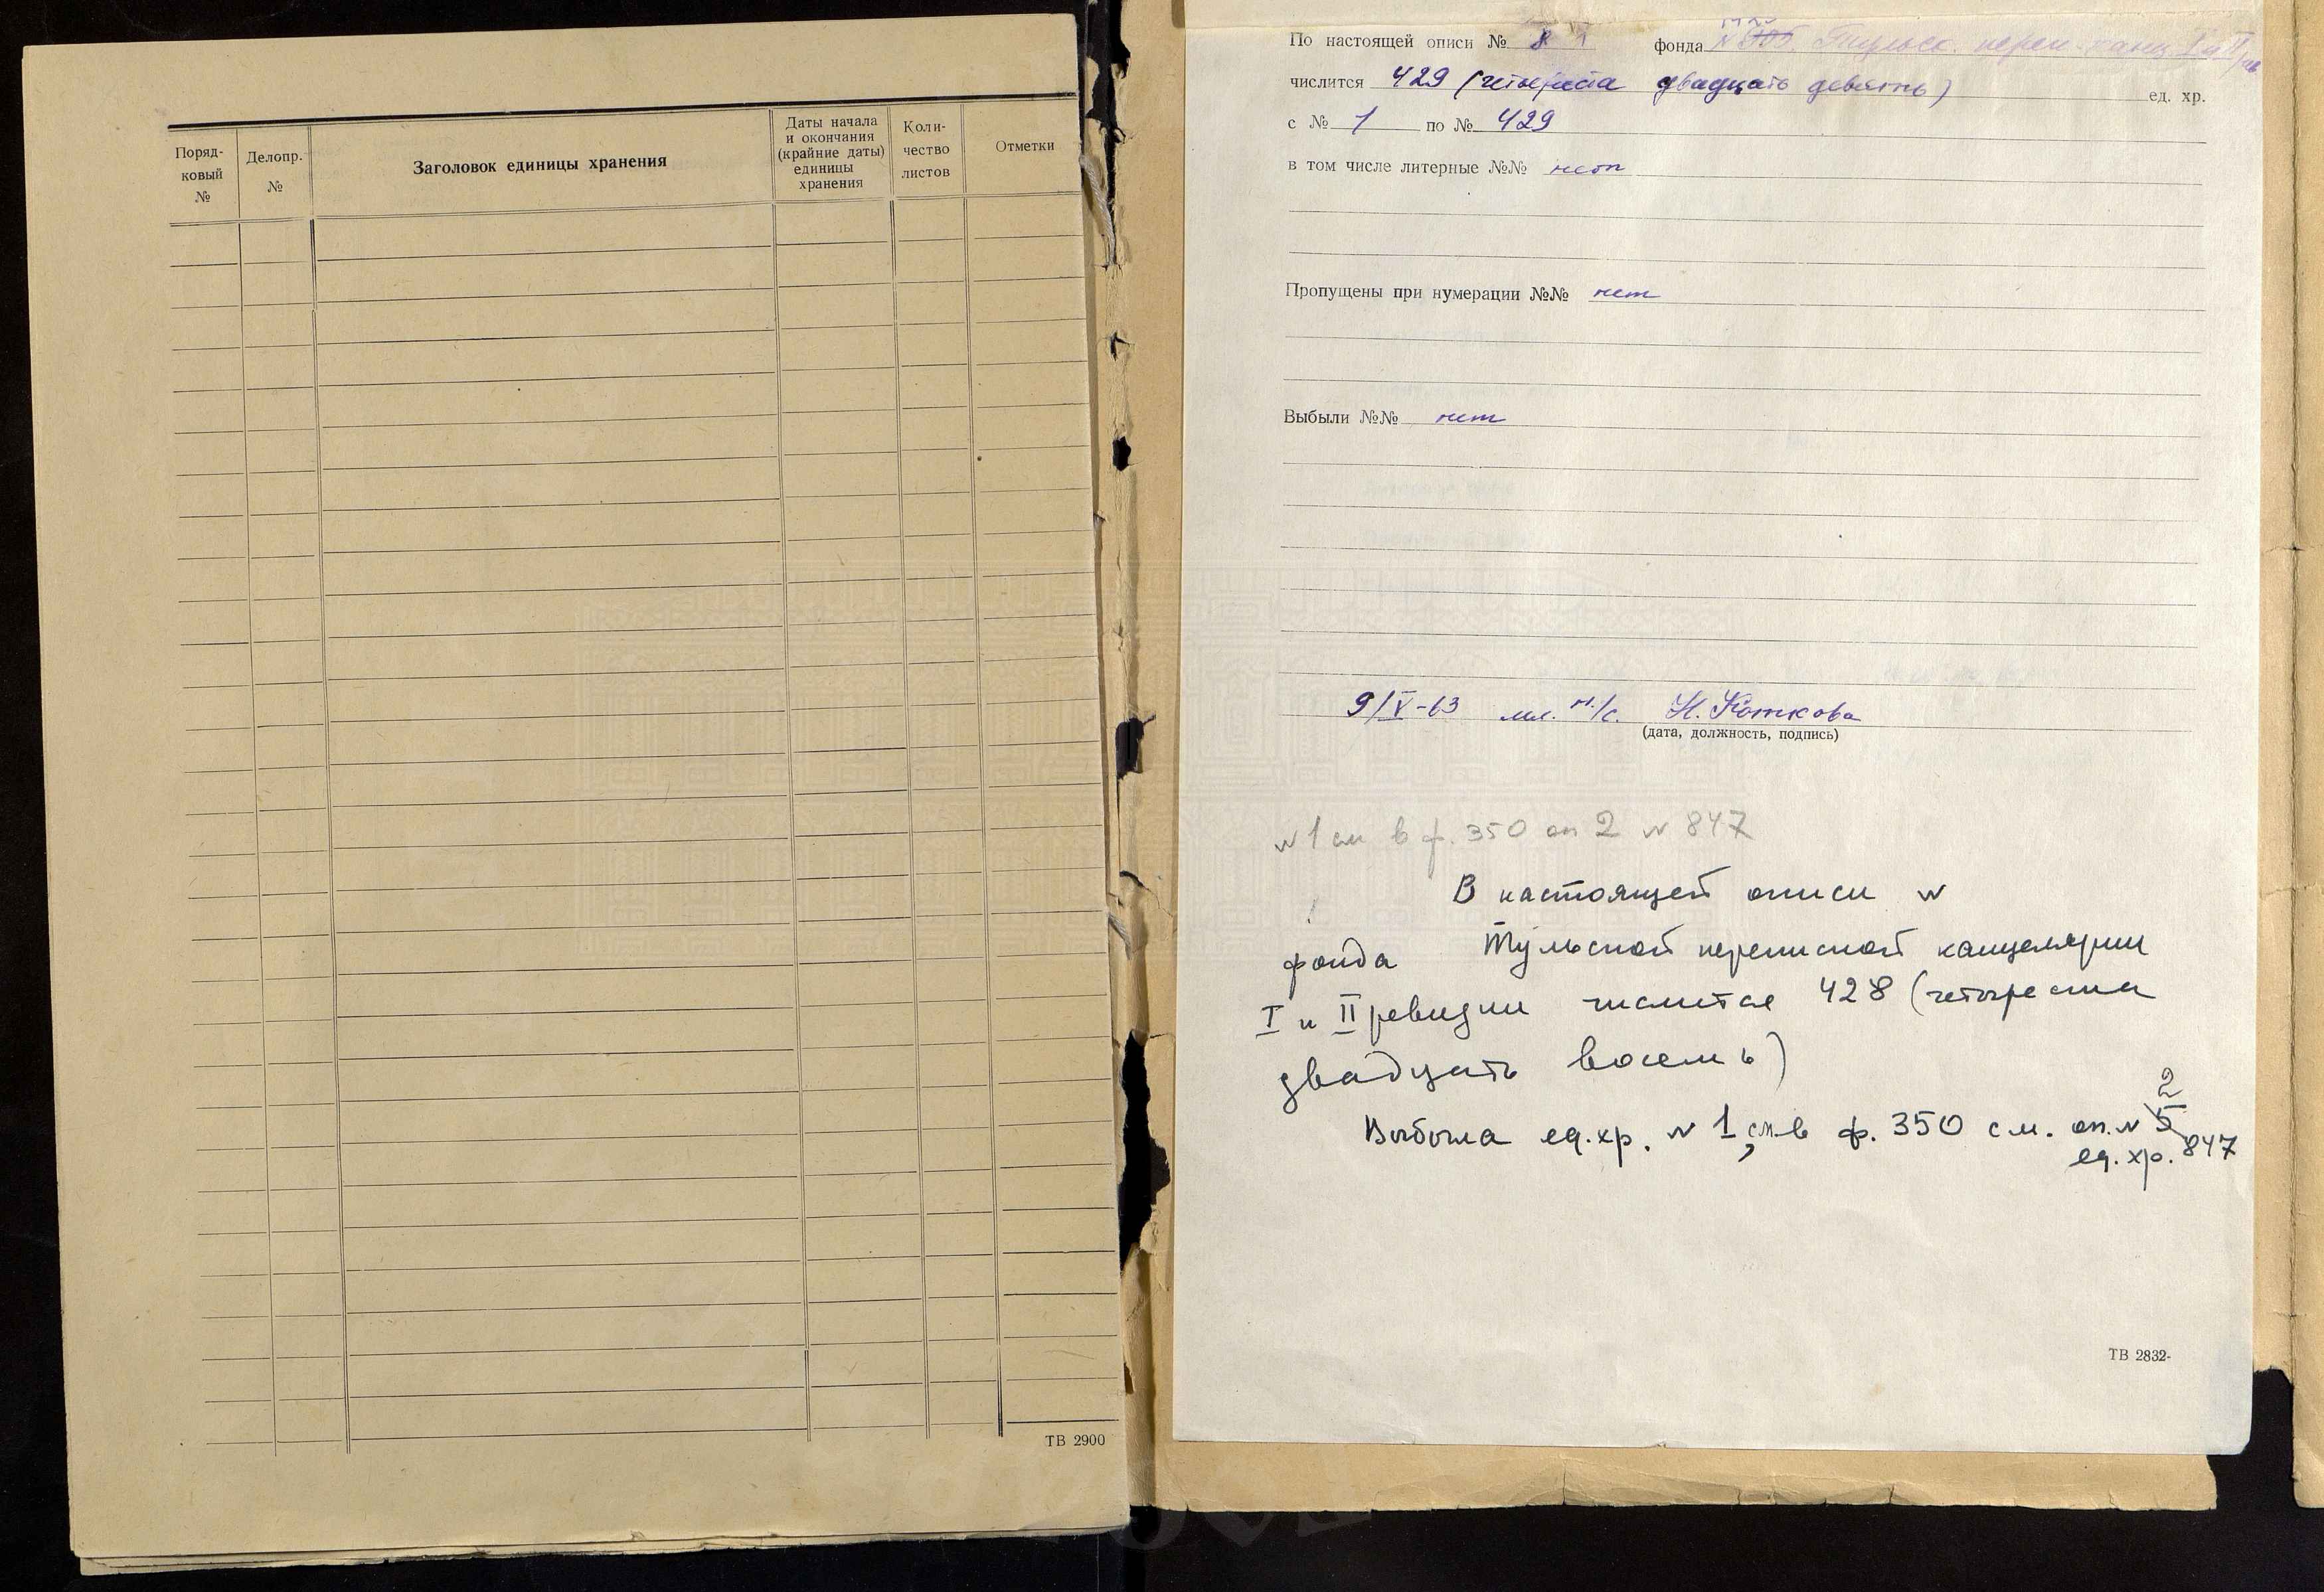 Поряд-
ковый
№
Делопр.
№
Заголовок единицы хранения
Даты начала
и окончания
(крайние даты)
единицы
хранения
Коли-
чество
листов
Отметки
ТВ 2900
По настоящей описи № фонда
числится 429 (четыреста двадцать девять) ед. хр.
с № 1 по № 429
в том числе литерные №№ нет
Пропущены при нумерации №№ нет
Выбыли №№ нет
9/IV-63 мл. н./с. Н. Коткова
(дата, должность, подпись)
№ 1 см в ф. 350 оп 2 № 847
В настоящей описи №
фонда Тульской переписной канцелярии
I и II ревизии числится 428 (четыреста
двадцать восемь)
Выбыла ед.хр. № 1, см. в ф. 350 см. оп. № 2
ед. хр. 847
ТВ 2832-